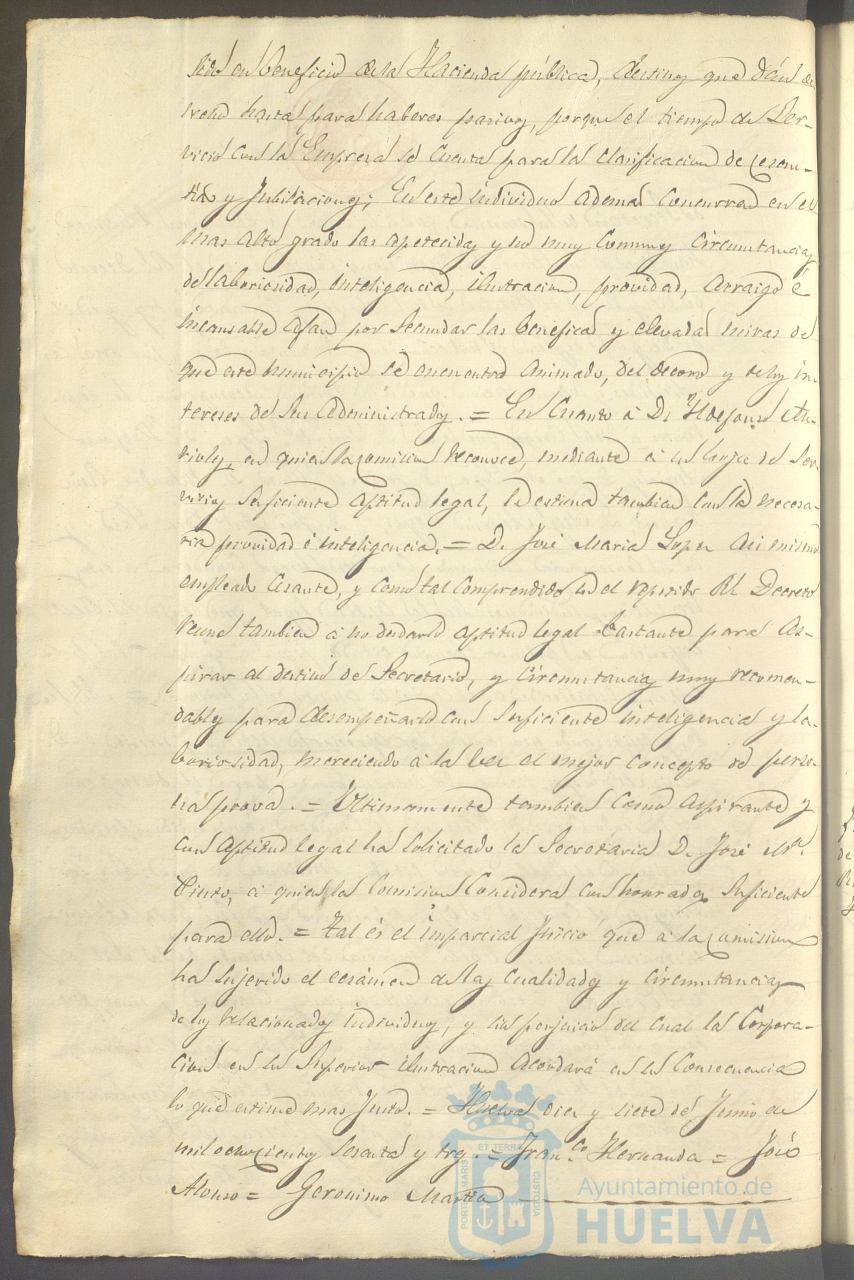 sido en beneficio de la Hacienda pública, destinos que dán de-
recho hasta para haberes pasivos, porque el tiempo de Ser-
vicio con la Empresa se cuenta para la clasificacion de cesan-
tias y Jubilaciones; En este individuo ademas concurren en el
mas alto grado las apetecidas y no muy comunes circunstancias
de laboriosidad, inteligencia, ilustracion, providad, arraigo é
incansable afan por secundar las beneficas y elevadas miras de
que este municipio se encuentra animado, del decoro y de los in-
tereses de sus Administrados. = En cuanto á D. Yldefonso
en quien la comision reconoce, mediante á su hoja de Ser-
vicios suficiente aptitud legal, le estima tambien con la necesa-
ria providad é inteligencia. = D. José Maria Lopez asi mismo
empleado cesante, y como tal comprendido en el repetido Rl Decreto
reune tambien á no dudarlo aptitud legal bastante para as-
pirar al destino de Secretario, y circunstancias muy recomen-
dables para desempeñarlo con suficiente inteligencia y la-
boriosidad, mereciendo á la vez el mejor concepto de perso-
na prova. = Ultimamente tambien como aspirante y
con aptitud legal ha solicitado la Secretaria D. José Ma.
Pinto, á quien la Comision considera con honradez suficiente
para ello. = Tal es el imparcial Juicio que á la comision
ha sujerido el ecsámen de las cualidades y circunstancias
de los relacionados individuos, y sin perjuicio del cual la Corpora-
cion en su superior ilustracion acordará en su consecuencia
lo que estime mas Justo. = Huelva diez y siete de Junio de
mil ochocientos sesenta y tres. = Franco. Hernandez = José
Alonso = Geronimo Martin
PORTUS MARIS ET TERRAE CUSTODIA
Ayuntamiento de
HUELVA